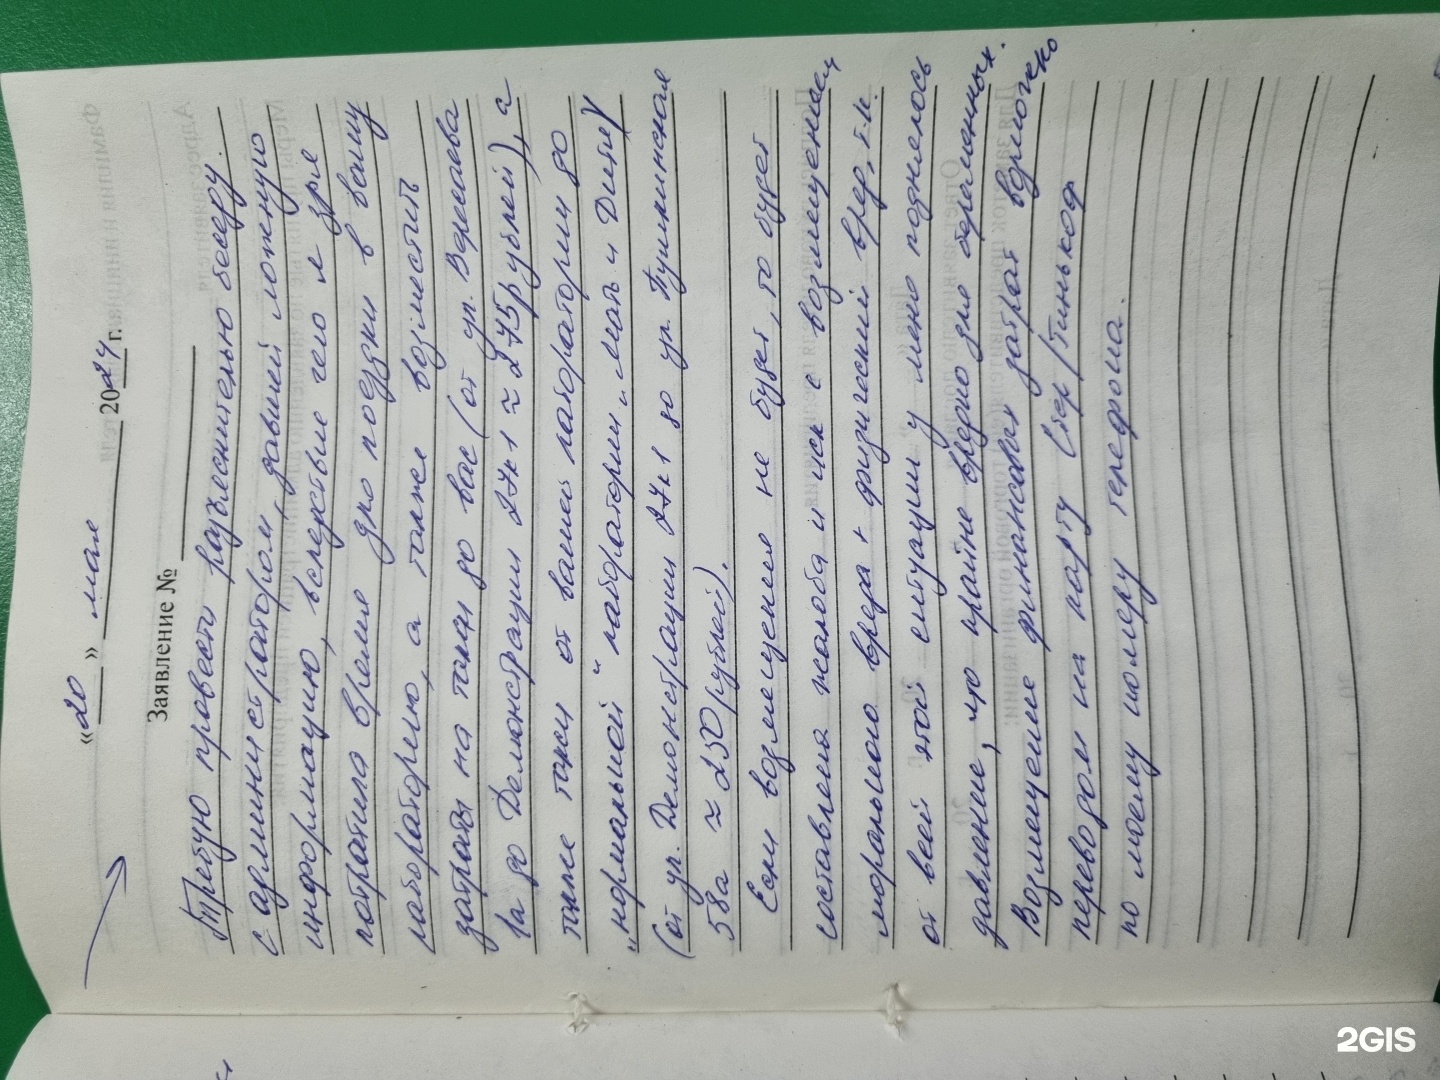 «20» мая 2024 г.
Заявление №
Требую провести разъяснительно беседу
с администратором, давшей ложную
информацию, вследствие чего я зря
потратила время для поездки в вашу
лабораторию, а также возместить
затраты на такси до вас (от ул. Вересаева
1а до Демонстрации 27к1 ≈ 275рублей), а
также такси от вашей лаборатории до
"нормальной" лаборатории "Мать и Дитя"
(от ул. Демонстрации 27к1 до ул. Пушкинская
58а ≈ 250рублей).
Если возмещения не будет, то будет
составлена жалоба и иск с возмещением
морального вреда + физический вред, т.к.
от всей этой ситуации у меня поднялось
давление, что крайне вредно для беременных.
Возмещение финансовых затрат возможно
переводом на карту Сбер/Тинькоф
по моему номеру телефона.
2GIS